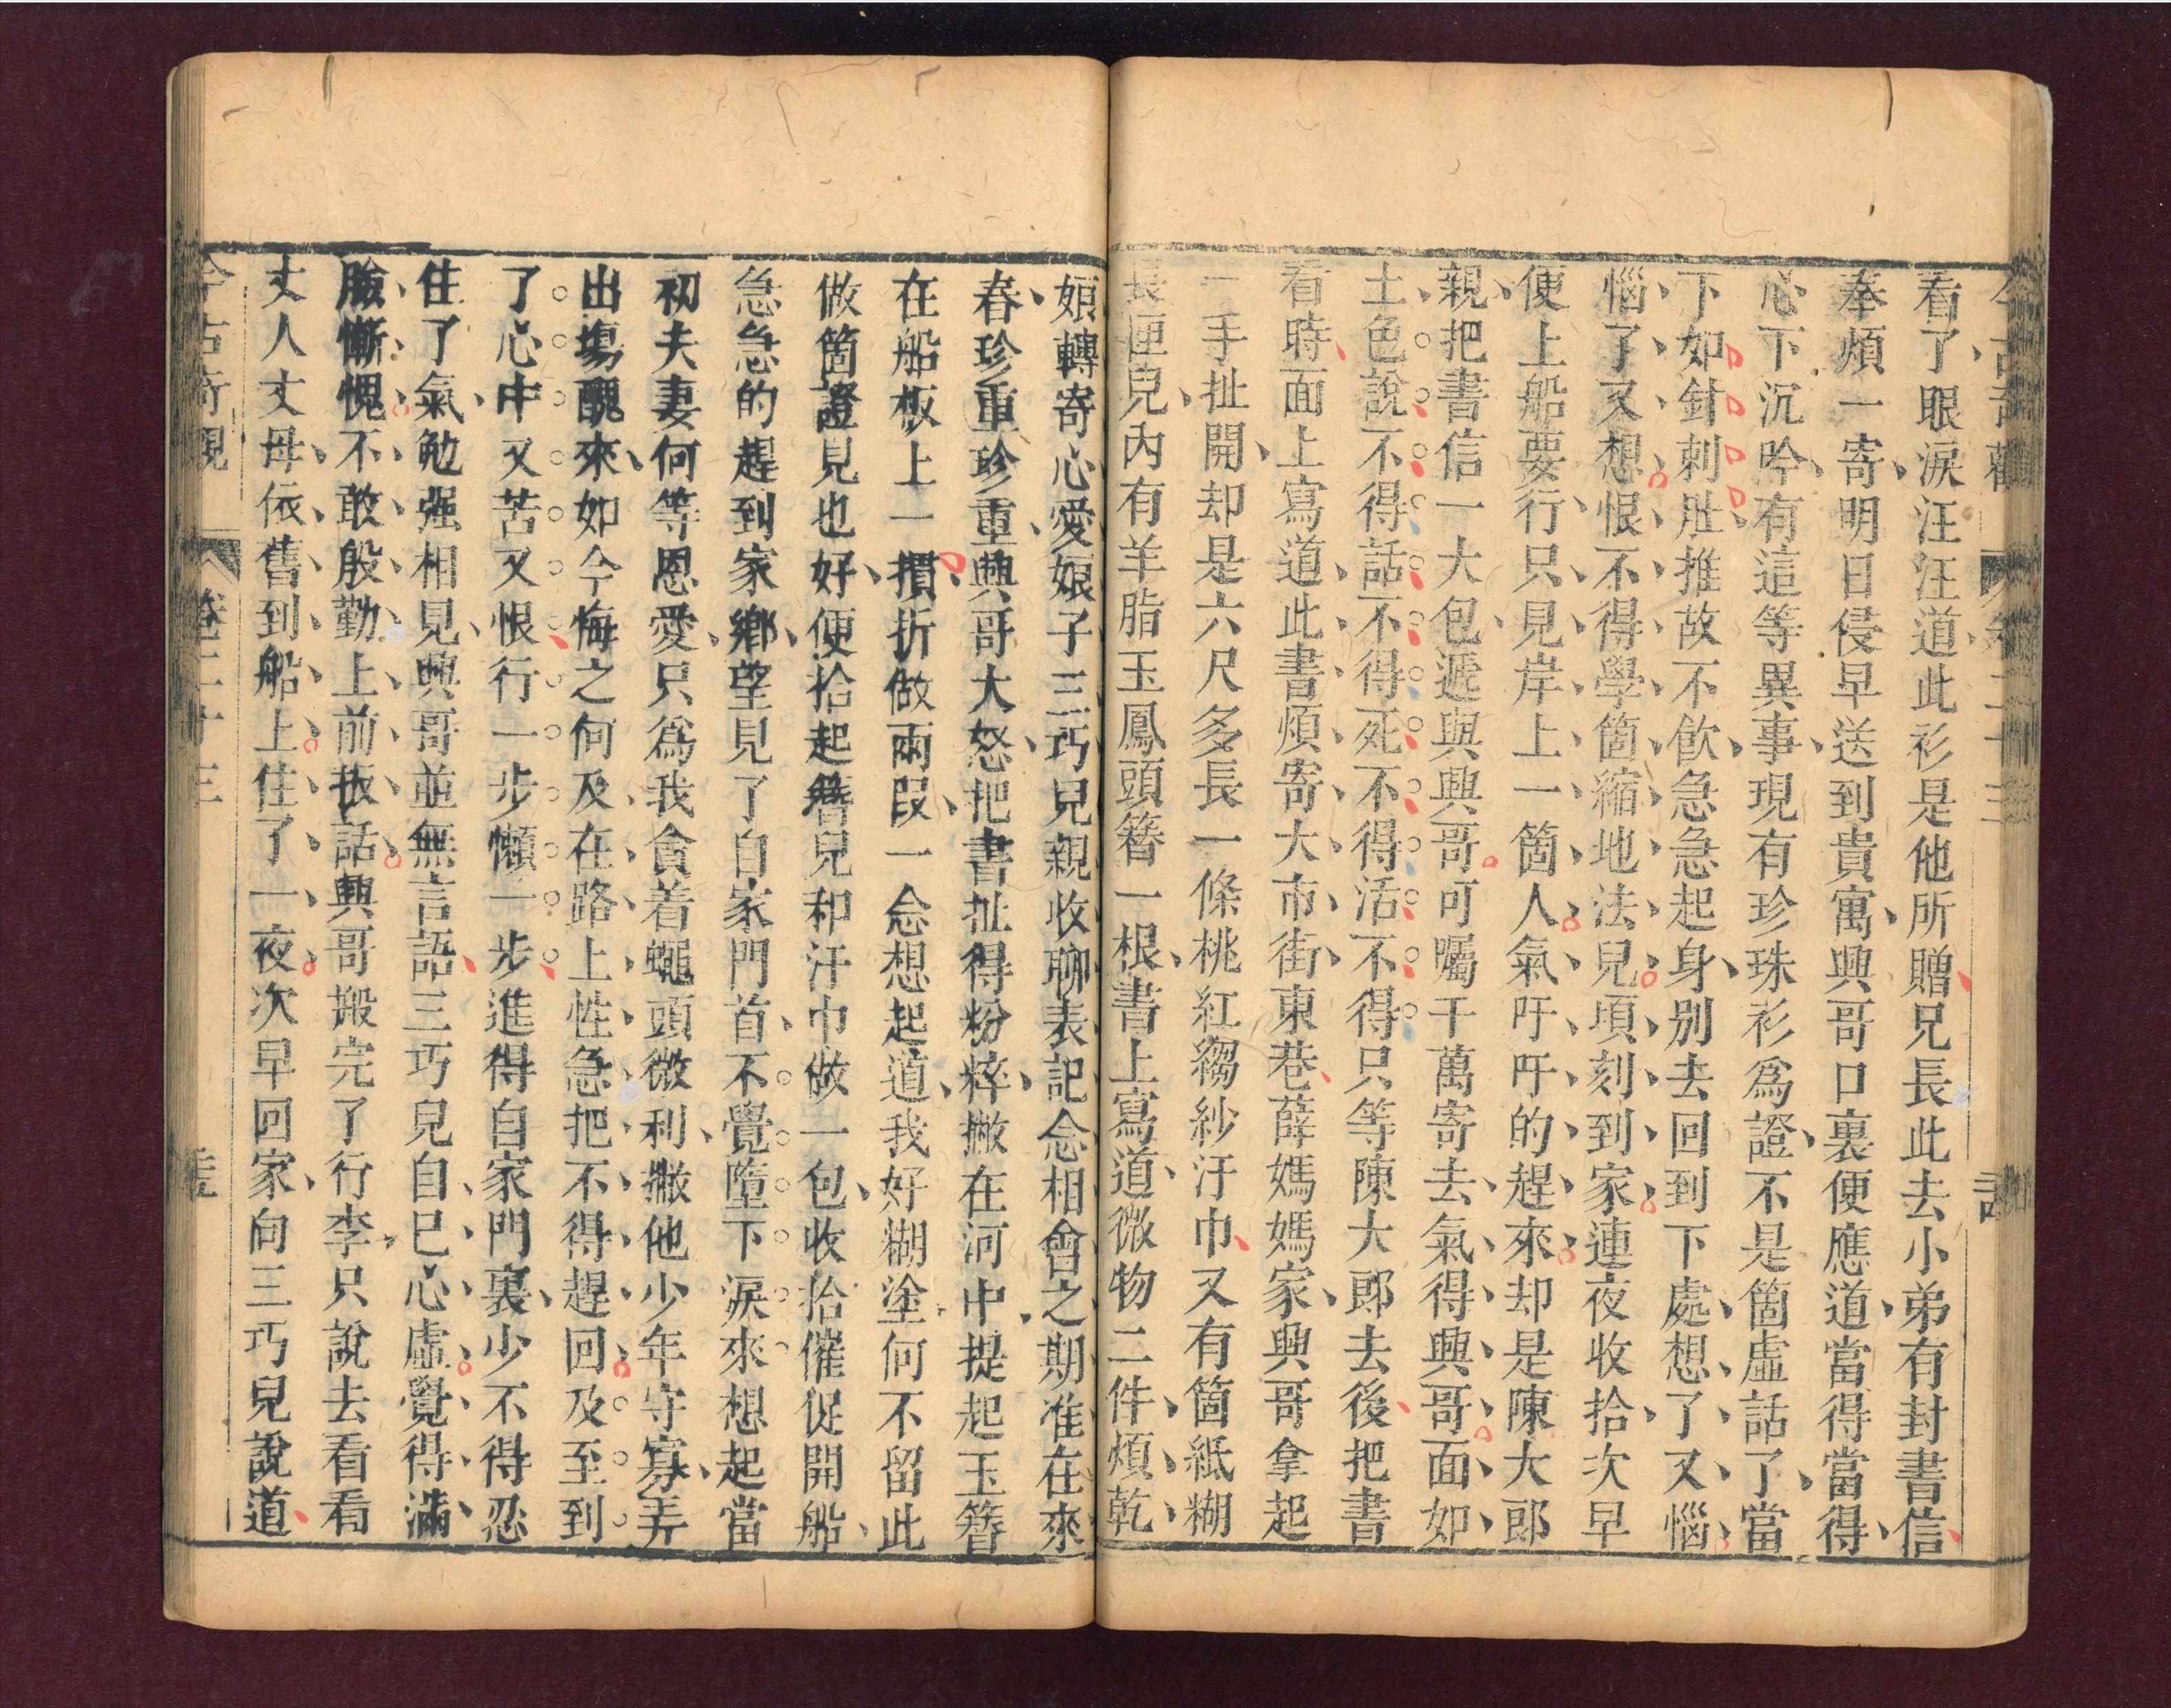 看了眼淚汪汪道此衫是他所贈兄長此去小弟有封書信
奉煩一寄明日侵早送到貴寓興哥口裏便應道當得當得
心下沉吟有這等異事現有珍珠衫爲證不是箇虛話了當
下如針刺肚推故不飲急急起身別去回到下處想了又惱
惱了又想恨不得學箇縮地法兒頃刻到家連夜收拾次早
便上船要行只見岸上一箇人氣吁吁的趕來却是陳大郎
親把書信一大包遞與興哥可囑千萬寄去氣得興哥面如
土色說不得話不得死不得活不得只等陳大郎去後把書
看時面上寫道此書煩寄大市街東巷薛媽媽家興哥拿起
一手扯開却是六尺多長一條桃紅縐紗汗巾又有箇紙糊
長匣兒內有羊脂玉鳳頭簪一根書上寫道微物二件煩乾
娘轉寄心愛娘子三巧兒親收聊表記念相會之期准在來
春珍重珍重興哥大怒把書扯得粉粹撇在河中提起玉簪
在船板上一摜折做兩段一念想起道我好糊塗何不留此
做箇證見也好便拾起簪兒和汗巾做一包收拾催促開船
急急的趕到家鄉望見了自家門首不覺墮下淚來想起當
初夫妻何等恩愛只爲我貪着蠅頭微利撇他少年守寡弄
出塲醜來如今悔之何及在路上性急把不得趕回及至到
了心中又苦又恨行一步懶一步進得自家門裏少不得忍
住了氣勉强相見興哥並無言語三巧兒自已心虛覺得滿
臉慚愧不敢殷勤上前扳話興哥搬完了行李只說去看看
丈人丈母依舊到船上住了一夜次早回家向三巧兒說道
今古奇觀 卷二十三